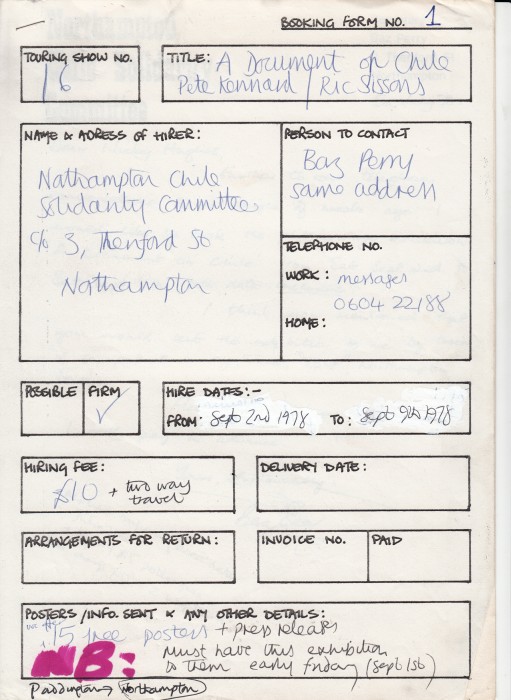 BOOKING FORM NO. 1
TOURING SHOW NO.
16
TITLE: A Document on Chile
Pete Kennard / Ric Sissons
NAME & ADRESS OF HIRER:
Northampton Chile
Solidarity Committee
c/o 3, Thenford St
Northampton
PERSON TO CONTACT
Baz Perry
same address
TELEPHONE NO.
WORK: messages
0604 22188
HOME:
POSSIBLE
FIRM
✓
HIRE DATES:-
FROM: Sept 2nd 1978 TO: Sept 9th 1978
HIRING FEE:
£10 + two way
travel
DELIVERY DATE:
ARRANGEMENTS FOR RETURN:
INVOICE NO.
PAID
POSTERS / INFO. SENT & ANY OTHER DETAILS:
15 free posters + press releases
NB: Must have this exhibition
to them early friday (Sept 1st)
Paddington → Northampton